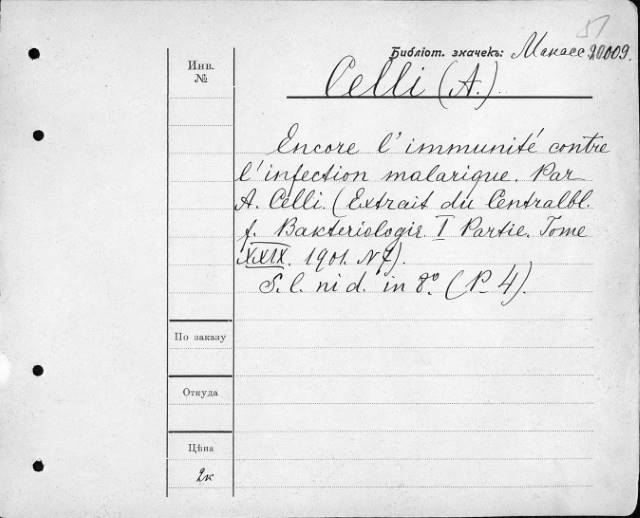 51
Библіот. значекъ: Манасс. 20009.
Инв.
№
Celli (A.).
Encore l'immunité contre
l'infection malarique. Par
A. Celli. (Extrait du Centralbl.
f. Bakteriologie I Partie. Tome
XXIX. 1901. N 7).
S. l. ni d. in 8º. (P. 4).
По заказу
Откуда
Цѣна
2к